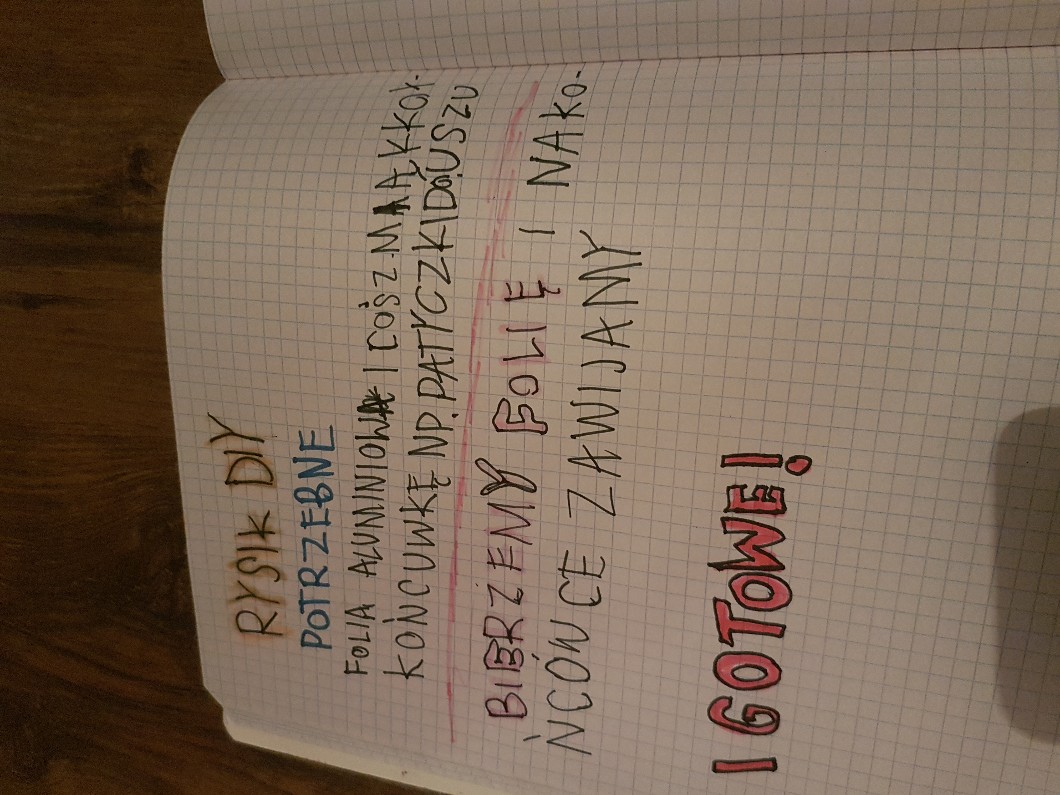 RYSIK DIY
POTRZEBNE
FOLIA ALUMINIOWA I COŚ Z MAĄKKOX-
KOŃCUWKĘ NP. PATYCZKI DO USZU
BIERZEMY FOLIĘ I NA KO-
ŃCÓWCE ZAWIJAMY
I GOTOWE!